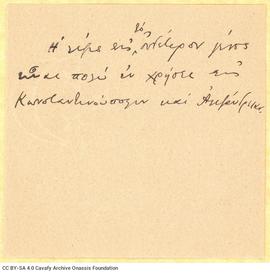 Η νίμε εις τὸ δεύτερον μέρος
είναι πολύ εν χρήσει εις
Κωνσταντινούπολιν καὶ Αλεξάνδρειαν.
CC BY-SA 4.0 Cavafy Archive Onassis Foundation